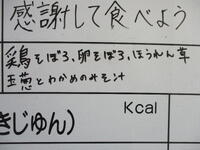 感謝して食べよう
鶏そぼろ、卵そぼろ、ほうれん草
玉葱とわかめのみそ汁
Kcal
きじゅん)